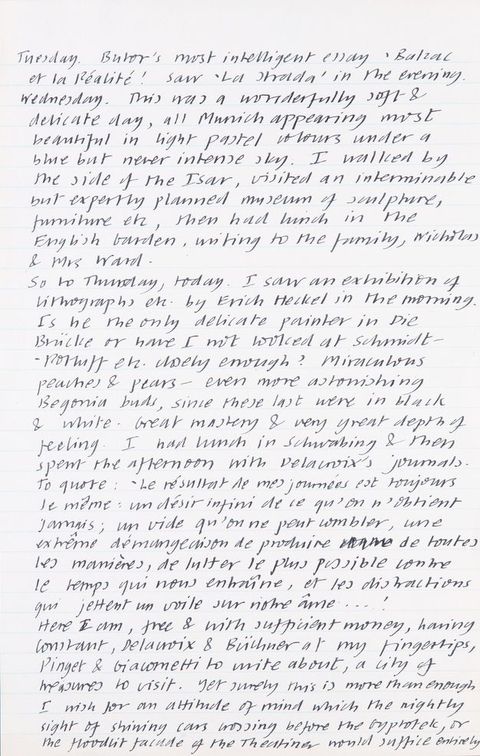 Tuesday. Butor's most intelligent essay 'Balzac
et la Réalité'! Saw 'La Strada' in the evening.
Wednesday. This was a wonderfully soft &
delicate day, all Munich appearing most
beautiful in light pastel colours under a
blue but never intense sky. I walked by
the side of the Isar, visited an interminable
but expertly planned museum of sculpture,
furniture etc, then had lunch in the
English Garden, writing to the family, Nicholas
& Mrs Ward.
So to Thursday, today. I saw an exhibition of
lithographs etc. by Erich Heckel in the morning.
Is he the only delicate painter in Die
Brücke or have I not looked at Schmidt-
-Rottluff etc. closely enough? Miraculous
peaches & pears – even more astonishing
Begonia buds, since these last were in black
& white. Great mastery & very great depth of
feeling. I had lunch in Schwabing & then
spent the afternoon with Delacroix's journals.
To quote: 'Le résultat de mes journées est toujours
le même: un désir infini de ce qu'on n'obtient
jamais; un vide qu'on ne peut combler, une
extrême démangeaison de produire de toutes
les manières, de lutter le plus possible contre
le temps qui nous entraîne, et les distractions
qui jettent un voile sur notre âme ... '
Here I am, free & with sufficient money, having
Constant, Delacroix & Büchner at my fingertips,
Pinget & Giacometti to write about, a city of
treasures to visit. Yet surely this is more than enough
I wish for an attitude of mind which the nightly
sight of shining cars crossing before the Glyptotek, or
the floodlit facade of the Theatiner would suffice entirely